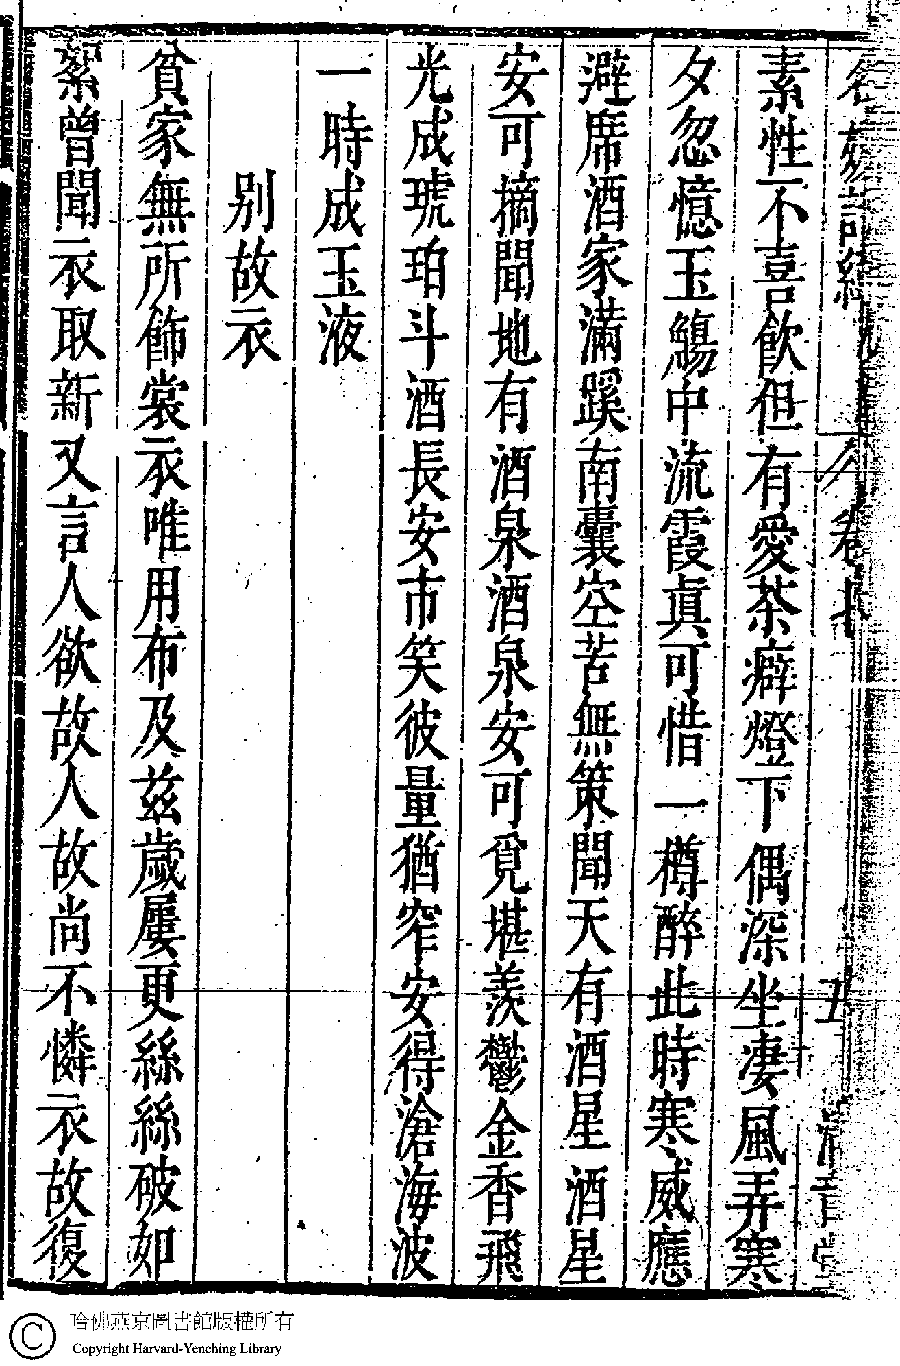 素性不喜飲但有愛茶癖燈下偶深坐凄風弄寒
夕忽憶玉觴中流霞眞可惜一樽醉此時寒威應
避席酒家滿蹊南囊空苦無策聞天有酒星酒星
安可摘聞地有酒泉酒泉安可覓堪羨鬱金香飛
光成琥珀斗酒長安市笑彼量猶窄安得滄海波
一時成玉液
別故衣
貧家無所飾裳衣唯用布及兹歲屢更絲絲破如
絮曾聞衣取新又言人欲故人故尚不憐衣故復
哈佛燕京圖書館版權所有
Copyright Harvard-Yenching Library